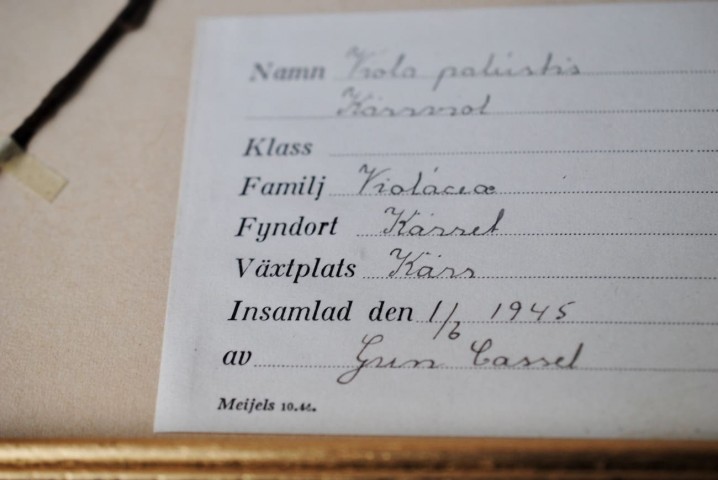 Namn Viola palústris
Kärrviol
Klass
Familj Violáceæ
Fyndort Kärret
Växtplats Kärr
Insamlad den 1/6 1945
av Gun Cassel
Meijels 10.44.